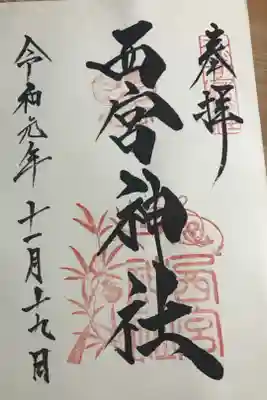 奉拝
西宮神社
令和元年十一月十九日
西宮